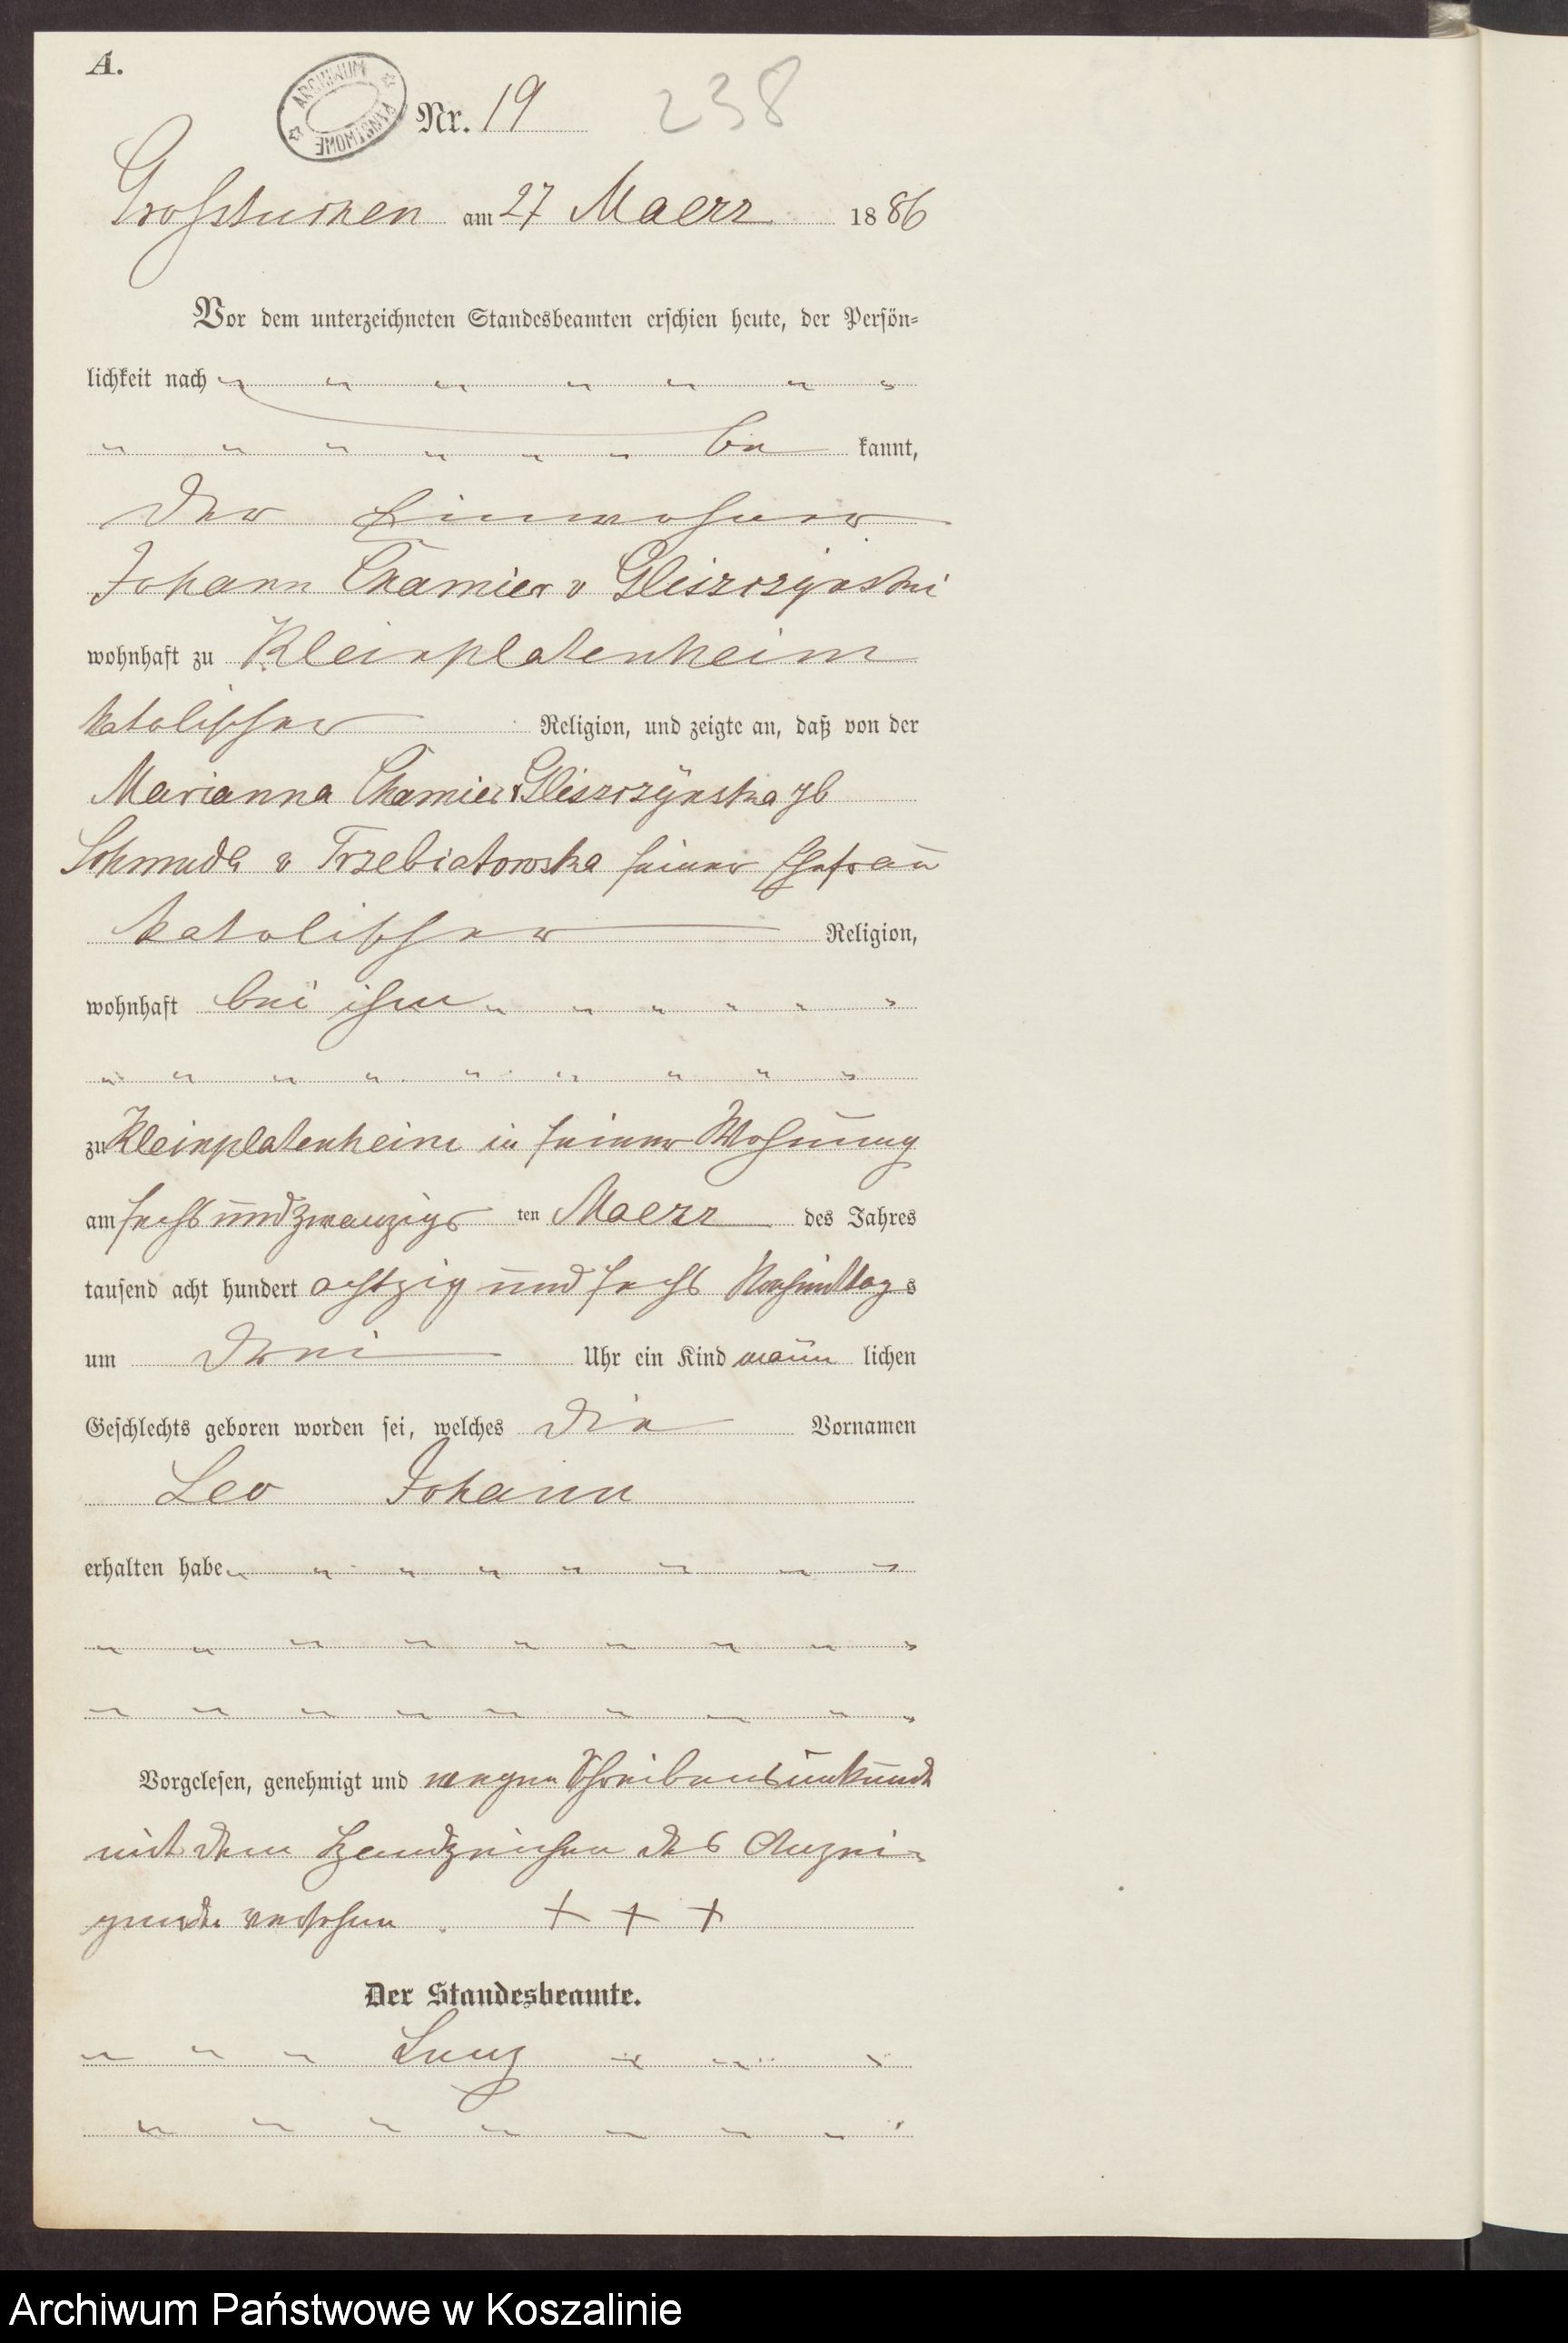 A.
ARCHIWUM PAŃSTWOWE
Nr. 19 238
Großtuchen am 27 Maerz 1886
Vor dem unterzeichneten Standesbeamten erschien heute, der Persön-
lichkeit nach
be kannt,
der Einwohner
Johann Chamier v Gliszczÿnski
wohnhaft zu Kleinplatenheim
katolischer Religion, und zeigte an, daß von der
Marianna Chamier v Gliszczÿnska gb
Schmude v Trzebiatowska seiner Ehefrau
katolischer Religion,
wohnhaft bei ihm
zu Kleinplatenheim in seiner Wohnung
am sechs und zwanzigs ten Maerz des Jahres
tausend acht hundert achtzig und sechs Nachmittags
um drei Uhr ein Kind männ lichen
Geschlechts geboren worden sei, welches die Vornamen
Leo Johann
erhalten habe
Vorgelesen, genehmigt und wegen Schreibensunkunde
mit dem Handzeichen des Anzei-
gende versehen + + +
Der Standesbeamte.
Archiwum Państwowe w Koszalinie